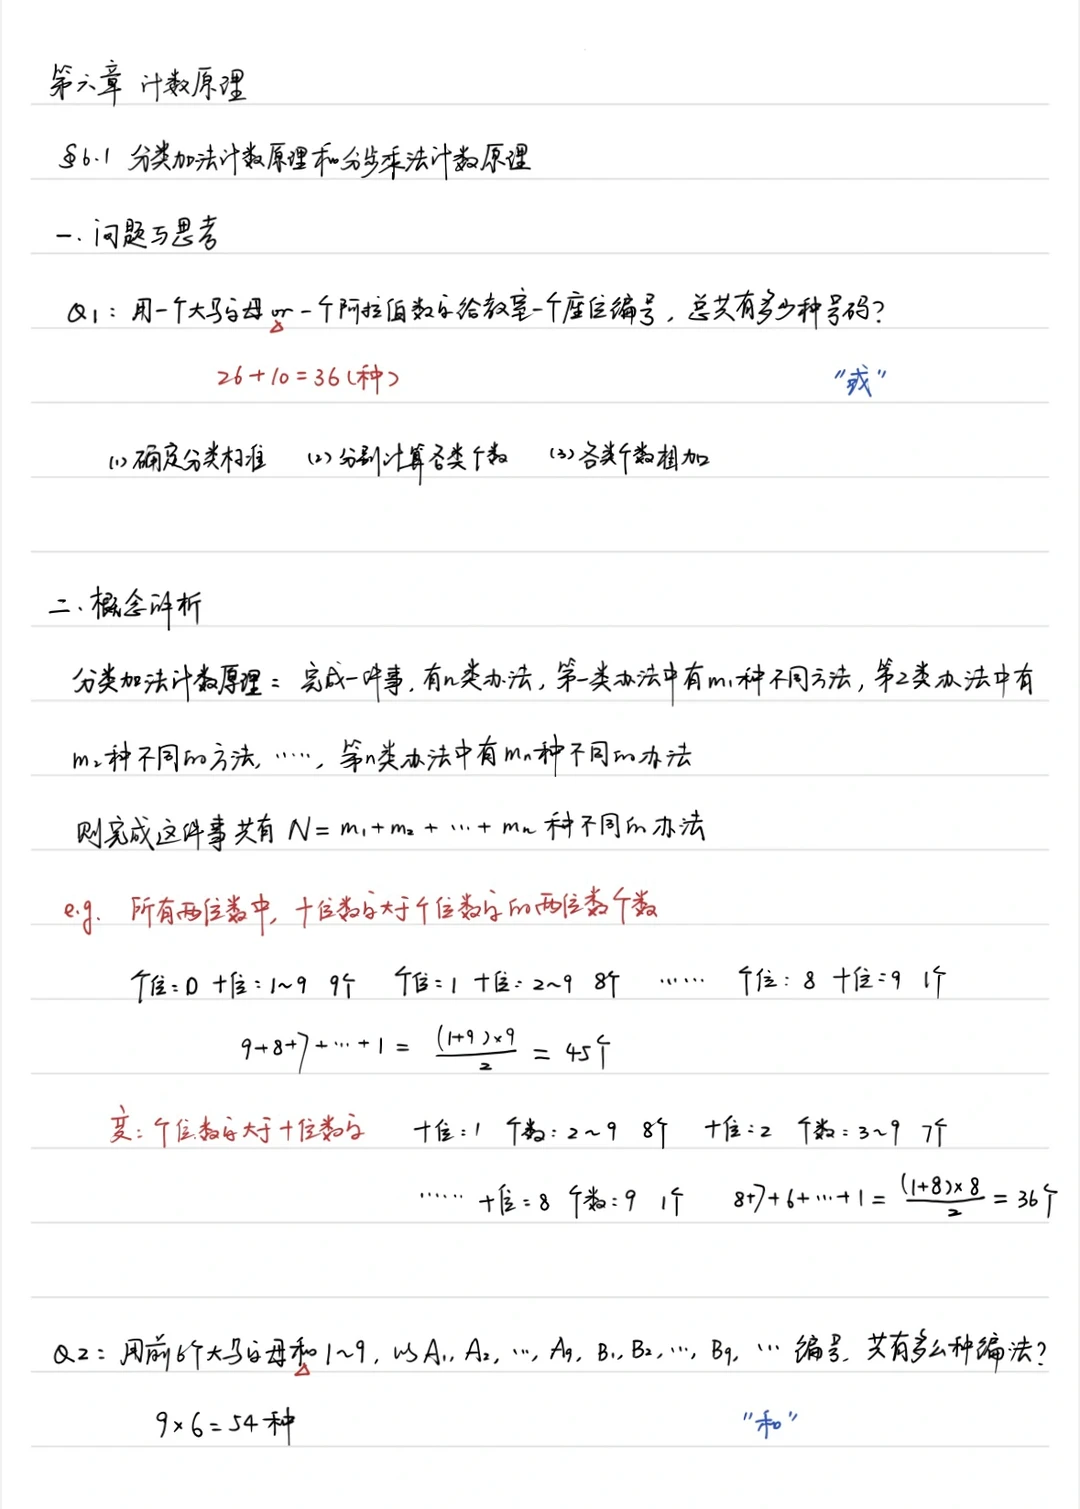 第六章 计数原理
§6.1 分类加法计数原理和分步乘法计数原理
一.问题与思考
Q1：用一个大写字母 or 一个阿拉伯数字给教室一个座位编号，总共有多少种号码？
26+10=36(种) "或"
(1)确定分类标准 (2)分别计算各类个数 (3)各类个数相加
二.概念评析
分类加法计数原理：完成一件事，有n类办法，第一类办法中有m₁种不同方法，第2类办法中有
m₂种不同的方法，……，第n类办法中有mₙ种不同的办法
则完成这件事共有 N=m₁+m₂+…+mₙ 种不同的办法
e.g. 所有两位数中，十位数字大于个位数字的两位数个数
个位：0 十位：1~9 9个 个位：1 十位：2~9 8个 …… 个位：8 十位：9 1个
9+8+7+…+1 = (1+9)×9/2 = 45个
变：个位数字大于十位数字 十位：1 个数：2~9 8个 十位：2 个数：3~9 7个
…… 十位：8 个数：9 1个 8+7+6+…+1 = (1+8)×8/2 = 36个
Q2：用前6个大写字母和1~9，以A₁，A₂，…，A₉，B₁，B₂，…，B₉，… 编号，共有多少种编法？
9×6=54种 "和"